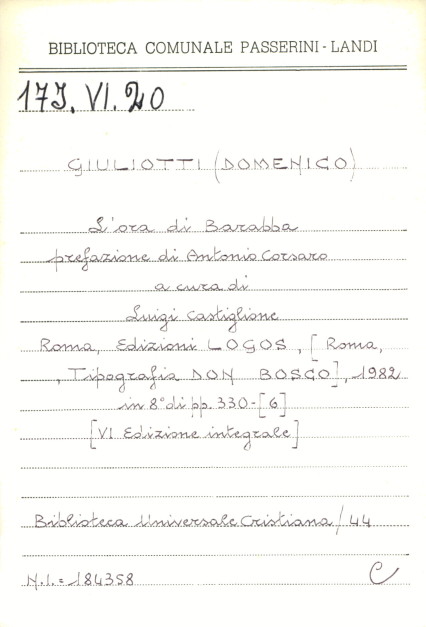 BIBLIOTECA COMUNALE PASSERINI - LANDI
173. VI. 20
GIULIOTTI (DOMENICO)
L'ora di Barabba
prefazione di Antonio Corsaro
a cura di
Luigi Castiglione
Roma, Edizioni LOGOS, [Roma,
, Tipografia DON BOSCO], 1982
in 8° di pp. 330-[6]
[VI Edizione integrale]
Biblioteca Universale Cristiana / 44
N.I. = 184358 C